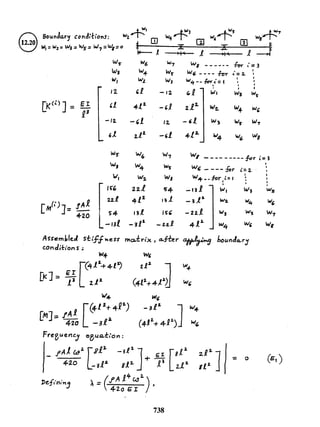 12.20
Boundary conditions:
W₁ = W₂ = W₃ = W₅ = W₇ = W₈ = 0
W₂ W₁ W₄ W₃ W₆ W₅ W₈ W₇
1 2 3
l l l
W₅ W₆ W₇ W₈ ------ for i = 3
W₃ W₄ W₅ W₆ ---- for i = 2
W₁ W₂ W₃ W₄ -- for i = 1
[K⁽ⁱ⁾] = EI/l³
12 6l -12 6l W₁ W₃ W₅
6l 4l² -6l 2l² W₂ W₄ W₆
-12 -6l 12 -6l W₃ W₅ W₇
6l 2l² -6l 4l² W₄ W₆ W₈
W₅ W₆ W₇ W₈ --------- for i = 3
W₃ W₄ W₅ W₆ ---- for i = 2
W₁ W₂ W₃ W₄ -- for i = 1
[M⁽ⁱ⁾] = ρAl/420
156 22l 54 -13l W₁ W₃ W₅
22l 4l² 13l -3l² W₂ W₄ W₆
54 13l 156 -22l W₃ W₅ W₇
-13l -3l² -22l 4l² W₄ W₆ W₈
Assembled stiffness matrix, after applying boundary
conditions:
W₄ W₆
[K] = EI/l³ [(4l² + 4l²) 2l² ] W₄
[2l² (4l² + 4l²)] W₆
W₄ W₆
[M] = ρAl/420 [(4l² + 4l²) -3l² ] W₄
[-3l² (4l² + 4l²)] W₆
Frequency equation:
| - ρAlω²/420 [8l² -3l²; -3l² 8l²] + EI/l³ [8l² 2l²; 2l² 8l²] | = 0 (E₁)
Defining λ = (ρAl⁴ω²/420EI),
738